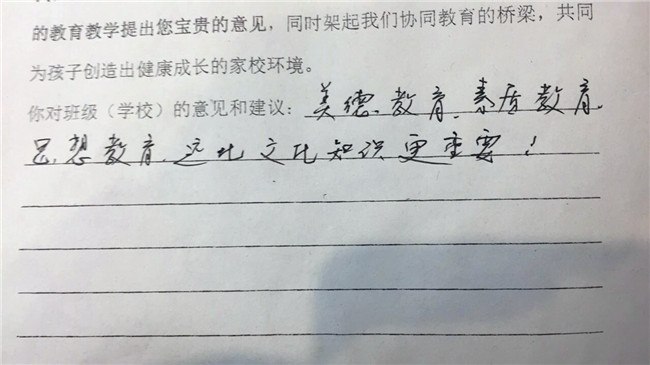 的教育教学提出您宝贵的意见，同时架起我们协同教育的桥梁，共同
为孩子创造出健康成长的家校环境。
你对班级（学校）的意见和建议：美德教育、素质教育、
思想教育、远比文化知识更重要！